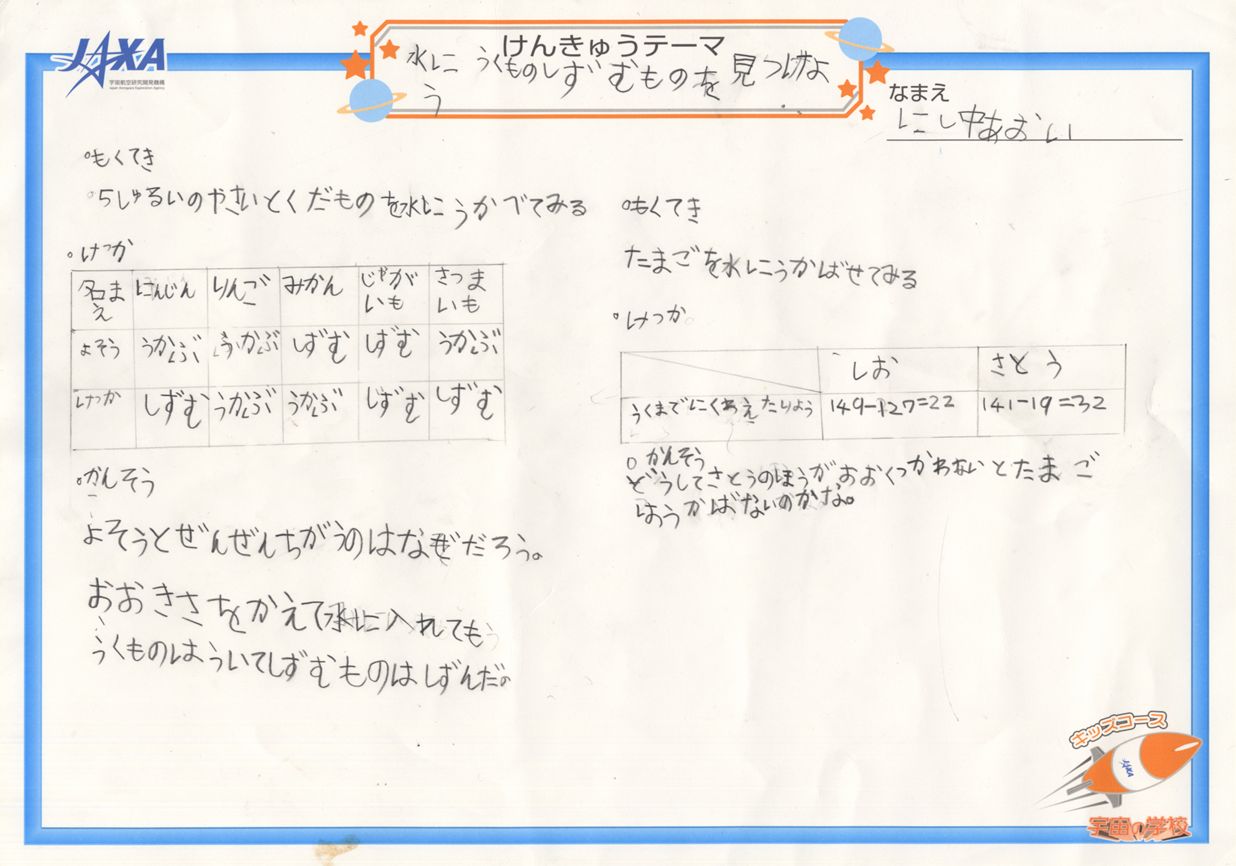 JAXA
宇宙航空研究開発機構
Japan Aerospace Exploration Agency
けんきゅうテーマ
水にうくものしずむものを見つけよ
う
なまえ
にし中あおい
°もくてき
°5しゅるいのやさいとくだものを水にうかべてみる
°けっか
名まえ にんじん りんご みかん じゃがいも さつまいも
よそう うかぶ うかぶ しずむ しずむ うかぶ
けっか しずむ うかぶ うかぶ しずむ しずむ
°かんそう
よそうとぜんぜんちがうのはなぜだろう。
おおきさをかえて水に入れてもう
うくものはういてしずむものはしずんだ。
°もくてき
たまごを水にうかばせてみる
°けっか
しお さとう
うくまでにくわえたりょう 149-127=22 141-19=32
°かんそう
どうしてさとうのほうがおおくつかわないとたまご
はうかばないのかな。
キッズコース
JAXA
宇宙の学校